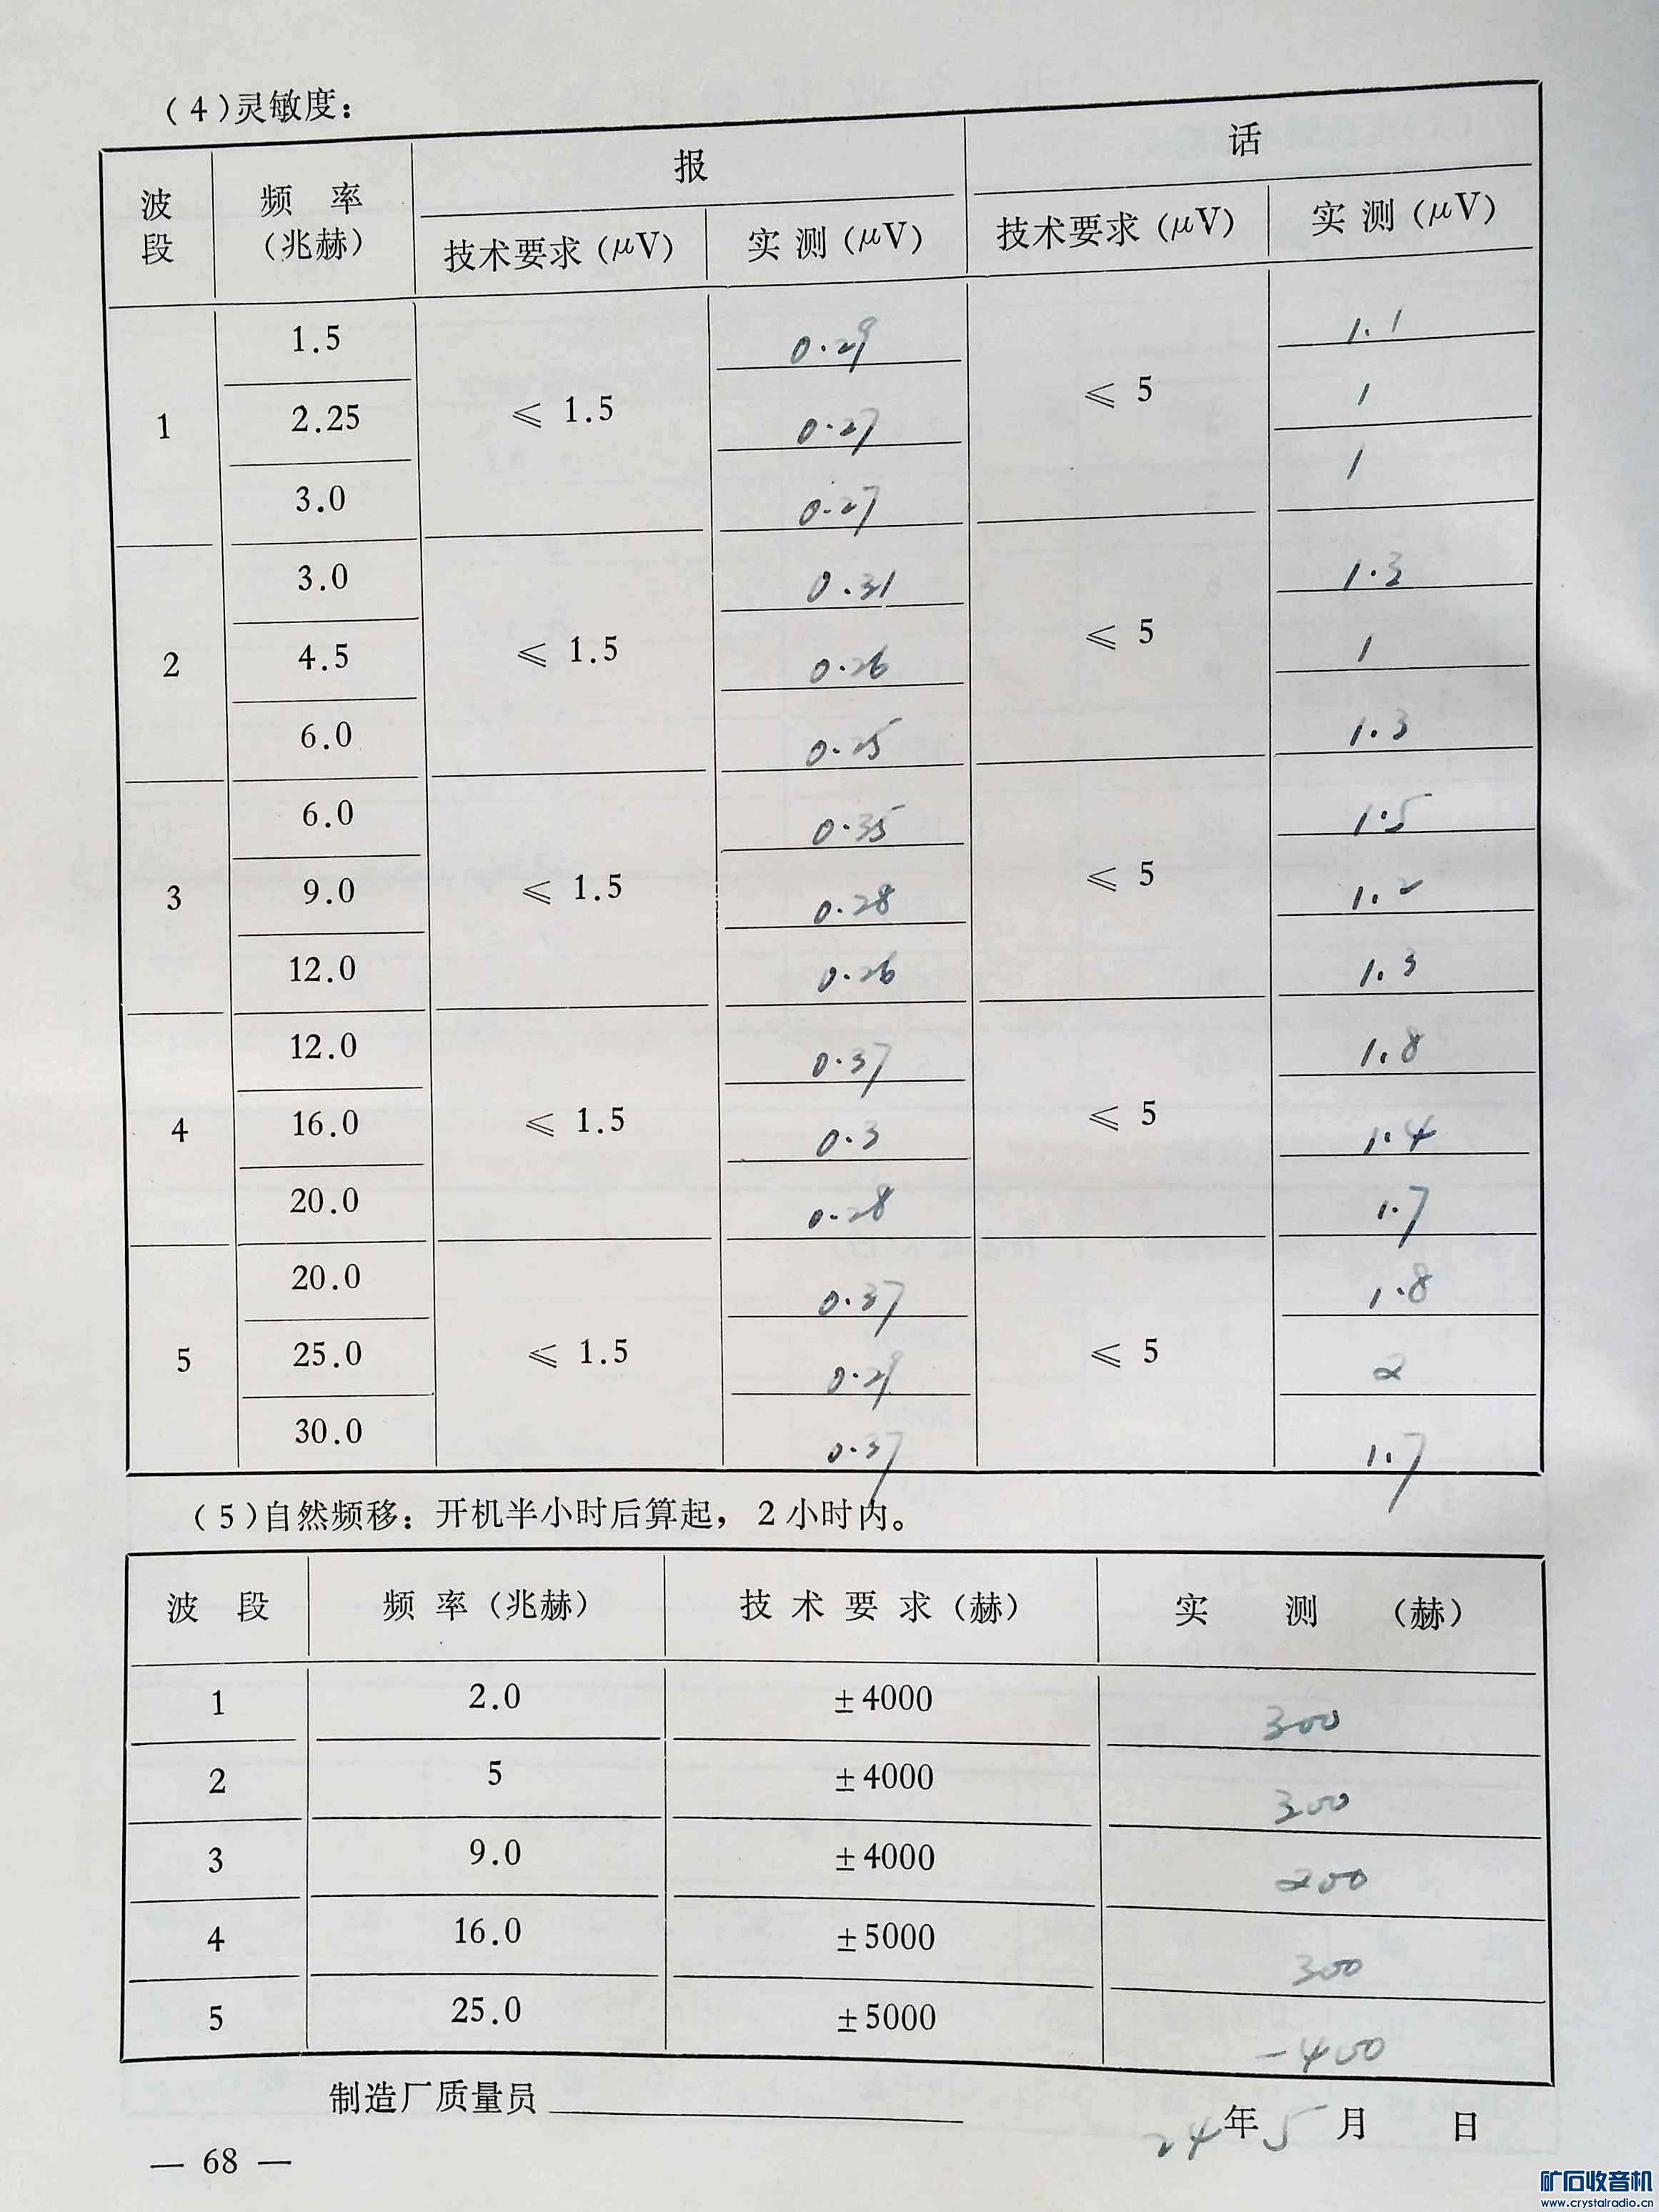 (4)灵敏度：
波段 频 率(兆赫) 报 话
技术要求(μV) 实 测(μV) 技术要求(μV) 实 测(μV)
1 1.5 ≤ 1.5 0.29 ≤ 5 1.1
2.25 0.27 1
3.0 0.27 1
2 3.0 ≤ 1.5 0.31 ≤ 5 1.3
4.5 0.26 1
6.0 0.25 1.3
3 6.0 ≤ 1.5 0.35 ≤ 5 1.5
9.0 0.28 1.2
12.0 0.26 1.3
4 12.0 ≤ 1.5 0.37 ≤ 5 1.8
16.0 0.3 1.4
20.0 0.28 1.7
5 20.0 ≤ 1.5 0.37 ≤ 5 1.8
25.0 0.29 2
30.0 0.37 1.7
(5)自然频移：开机半小时后算起，2小时内。
波 段 频 率(兆赫) 技 术 要 求(赫) 实 测 (赫)
1 2.0 ±4000 300
2 5 ±4000 300
3 9.0 ±4000 200
4 16.0 ±5000 300
5 25.0 ±5000 -400
制造厂质量员
24年5月 日
— 68 —
矿石收音机
www.crystalradio.cn